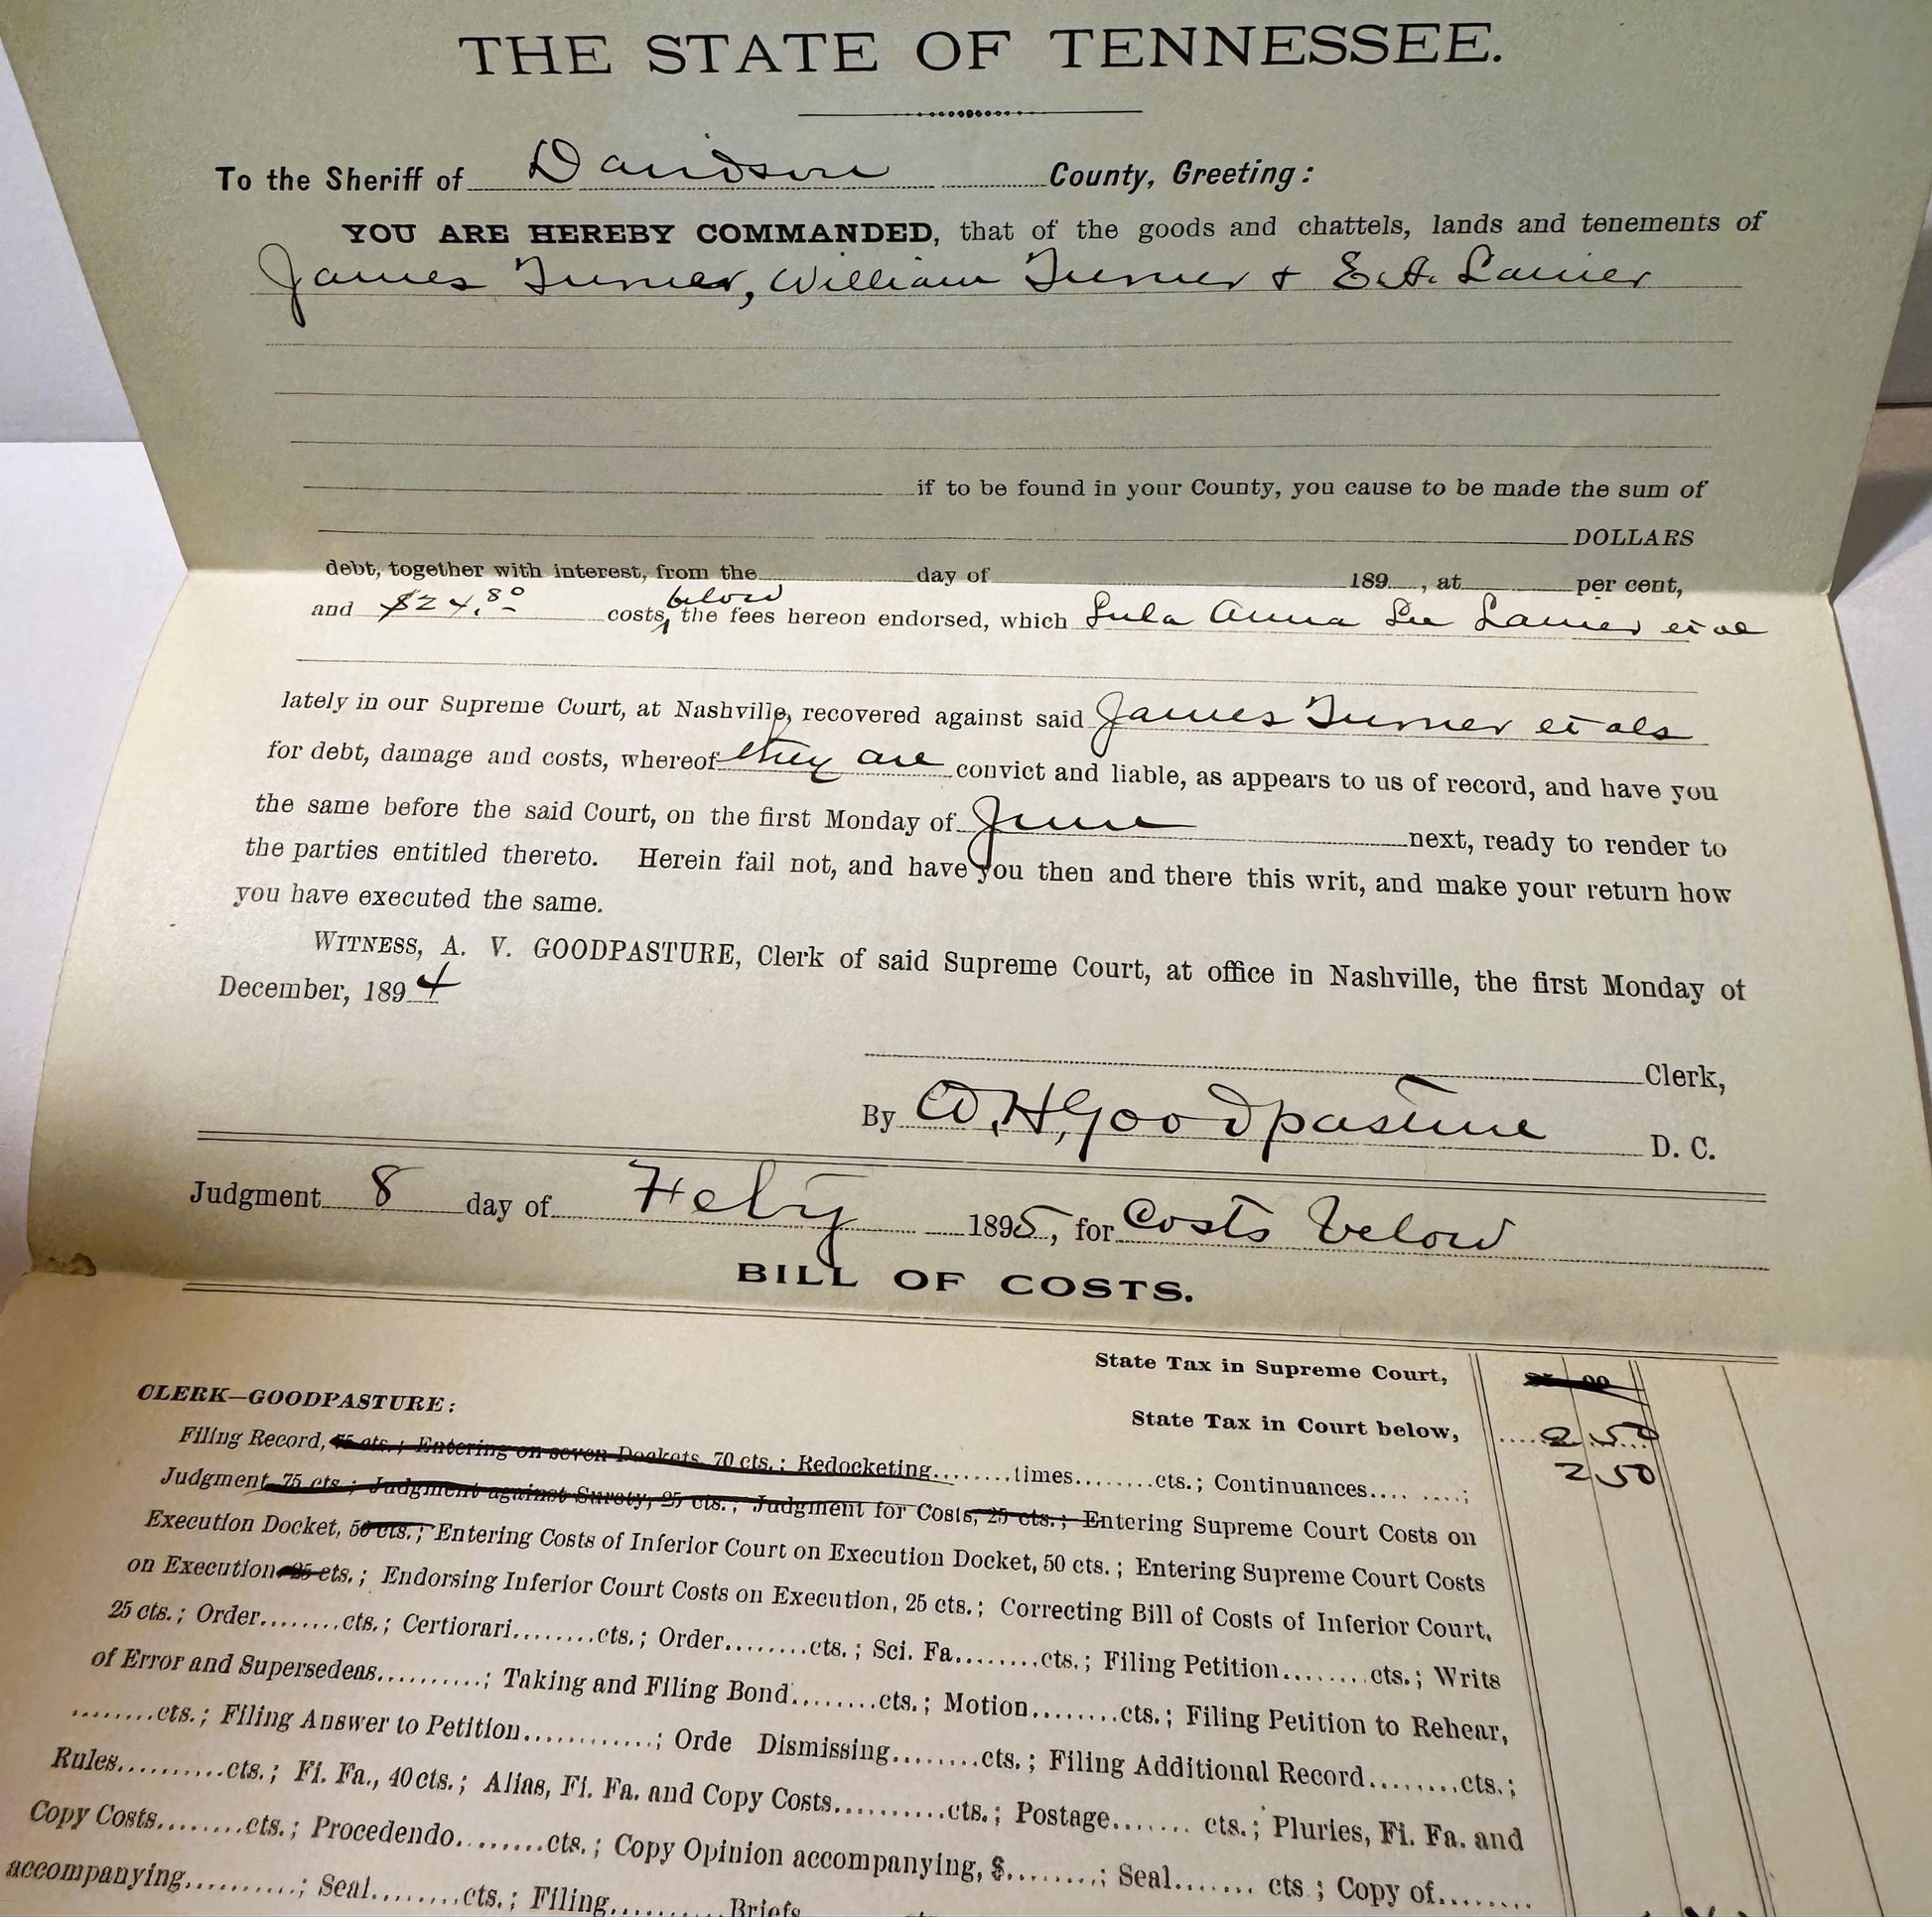 THE STATE OF TENNESSEE.
To the Sheriff of Davidson County, Greeting:
YOU ARE HEREBY COMMANDED, that of the goods and chattels, lands and tenements of
James Turner, William Turner & E.A. Lanier
if to be found in your County, you cause to be made the sum of
DOLLARS
debt, together with interest, from the day of 189 , at per cent,
below
and $24.80 costs, the fees hereon endorsed, which Lula Anna Lee Lanier et al
lately in our Supreme Court, at Nashville, recovered against said James Turner et als
for debt, damage and costs, whereof they are convict and liable, as appears to us of record, and have you
the same before the said Court, on the first Monday of June next, ready to render to
the parties entitled thereto. Herein fail not, and have you then and there this writ, and make your return how
you have executed the same.
WITNESS, A. V. GOODPASTURE, Clerk of said Supreme Court, at office in Nashville, the first Monday of
December, 1894
Clerk,
By W.H. Goodpasture D. C.
Judgment 8 day of Feby 1895, for Costs below
BILL OF COSTS.
State Tax in Supreme Court,
State Tax in Court below, 2 50
2 50
CLERK—GOODPASTURE:
Filing Record, 75 cts.; Entering on seven Dockets, 70 cts.; Redocketing........times........cts.; Continuances.... ....;
Judgment 75 cts.; Judgment against Surety, 25 cts.; Judgment for Costs, 25 cts.; Entering Supreme Court Costs on
Execution Docket, 50 cts.; Entering Costs of Inferior Court on Execution Docket, 50 cts.; Entering Supreme Court Costs
on Execution 25 cts.; Endorsing Inferior Court Costs on Execution, 25 cts.; Correcting Bill of Costs of Inferior Court,
25 cts.; Order........cts.; Certiorari........cts.; Order........cts.; Sci. Fa........cts.; Filing Petition........cts.; Writs
of Error and Supersedeas..........; Taking and Filing Bond........cts.; Motion........cts.; Filing Petition to Rehear,
........cts.; Filing Answer to Petition............; Orde Dismissing........cts.; Filing Additional Record........cts.;
Rules..........cts.; Fi. Fa., 40 cts.; Alias, Fi. Fa. and Copy Costs..........cts.; Postage....... cts.; Pluries, Fi. Fa. and
Copy Costs........cts.; Procedendo........cts.; Copy Opinion accompanying, $........; Seal....... cts.; Copy of........
accompanying..........; Seal........cts.; Filing..........Briefs